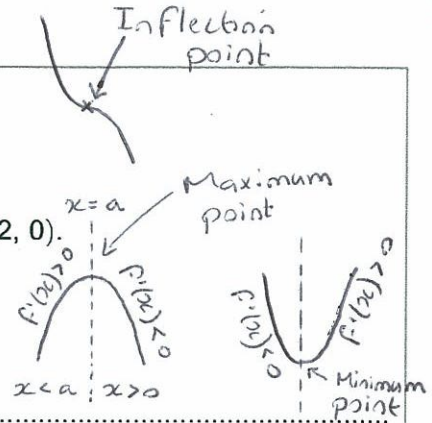 Inflection
point
Maximum
point
x = a
2, 0).
f'(x)>0
f'(x)<0
x<a
x>0
f'(x)<0
f'(x)>0
Minimum
point